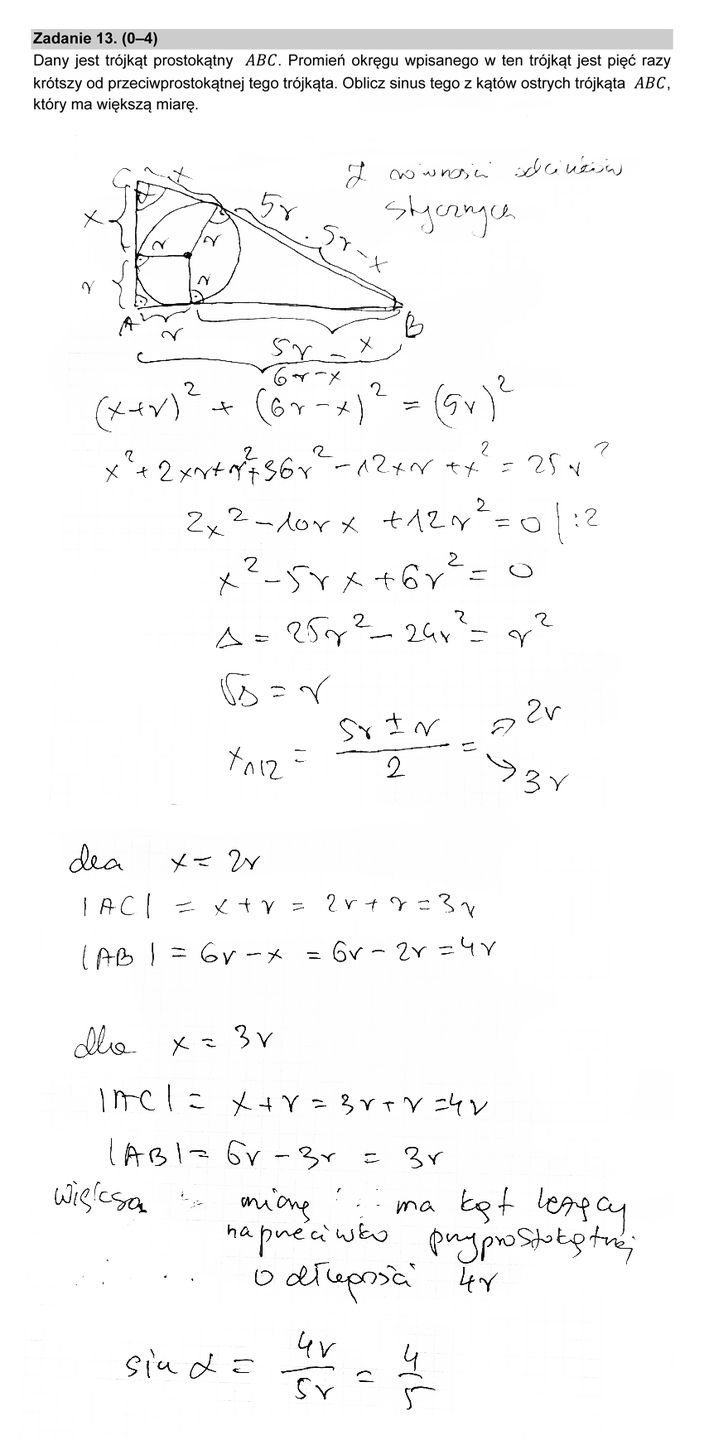 Zadanie 13. (0–4)
Dany jest trójkąt prostokątny ABC. Promień okręgu wpisanego w ten trójkąt jest pięć razy
krótszy od przeciwprostokątnej tego trójkąta. Oblicz sinus tego z kątów ostrych trójkąta ABC,
który ma większą miarę.
Z równości odcinków
stycznych
C x
x 5r
5r - x
r r
r r
A r B
5r - x
6r - x
(x+r)² + (6r-x)² = (5r)²
x² + 2xr + r² + 36r² - 12xr + x² = 25r²
2x² - 10rx + 12r² = 0 |:2
x² - 5rx + 6r² = 0
Δ = 25r² - 24r² = r²
√Δ = r
x₁,₂ = (5r ± r)/2 = → 2r
→ 3r
dla x = 2r
|AC| = x + r = 2r + r = 3r
|AB| = 6r - x = 6r - 2r = 4r
dla x = 3r
|AC| = x + r = 3r + r = 4r
|AB| = 6r - 3r = 3r
większą miarę ma kąt leżący
naprzeciwko przyprostokątnej
o długości 4r
sin α = 4r/5r = 4/5